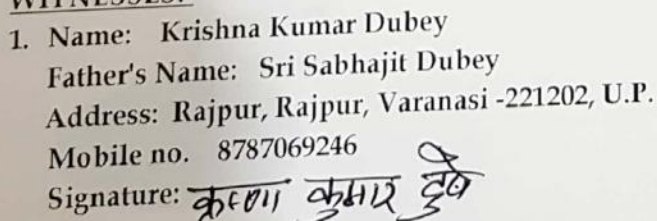 WITNESSES:
1. Name: Krishna Kumar Dubey
Father's Name: Sri Sabhajit Dubey
Address: Rajpur, Rajpur, Varanasi -221202, U.P.
Mobile no. 8787069246
Signature: कृष्णा कुमार दुबे